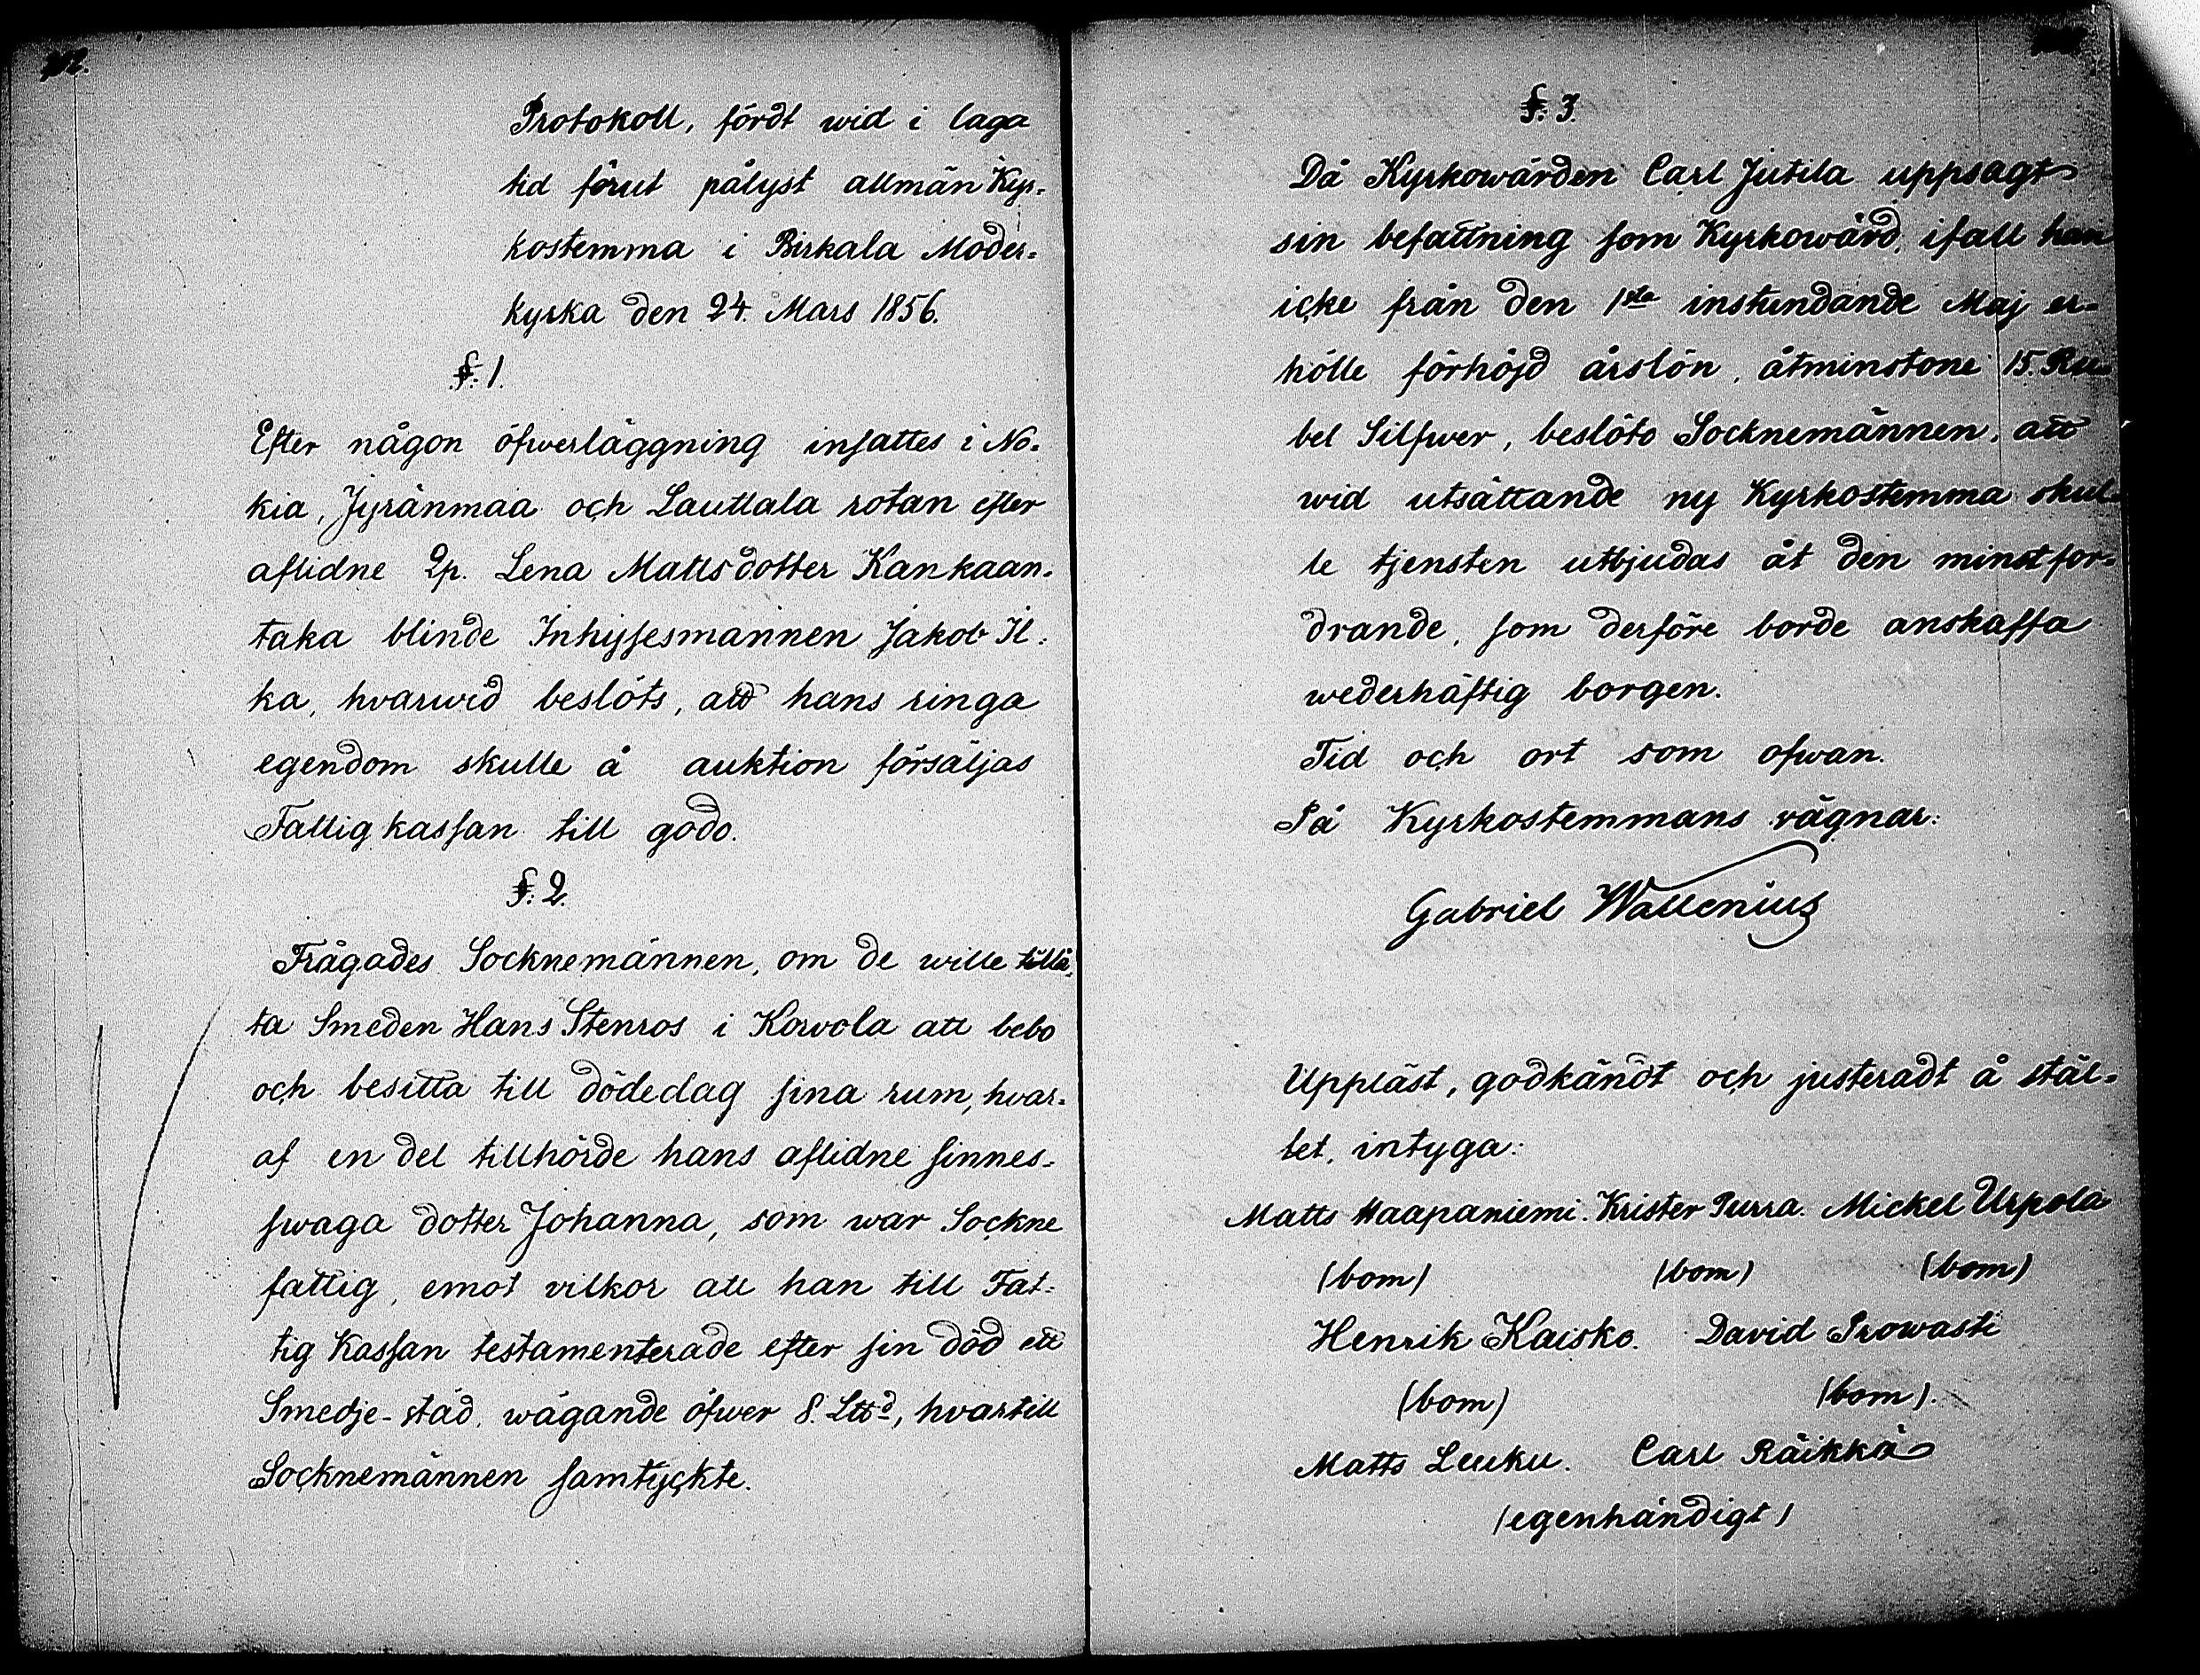 Protokoll, fördt wid i laga
tid förut pålyst allmän Kyr-
kostemma i Birkala Moder-
kyrka den 24. Mars 1856.
§. 1.
Efter någon öfwerläggning insattes i No-
kia, Jyränmaa och Lauttala rotan efter
aflidne Qp. Lena Mattsdotter Kankaan-
taka blinde Inhysesmannen Jakob Il-
ka, hvarwid beslöts, att hans ringa
egendom skulle å auktion försäljas
Fattigkassan till godo.
§. 2.
Frågades Socknemännen, om de wille tillå-
ta Smeden Hans Stenros i Korvola att bebo
och besitta till dödedag sina rum, hvar-
af en del tillhörde hans aflidne sinnes-
swaga dotter Johanna, som war Sockne
fattig, emot vilkor att han till Fat-
tig Kassan testamenterade efter sin död ett
Smedje-städ, wägande öfwer 8. Lttd, hvartill
Socknemännen samtyckte.
§. 3.
Då Kyrkowärden Carl Jutila uppsagt
sin befattning som Kyrkowärd, ifall han
icke från den 1sta instundande Maj er-
hölle förhöjd årslön, åtminstone 15. Ru-
bel Silfwer, beslöto Socknemännen, att
wid utsättande ny Kyrkostemma skul-
le tjensten utbjudas åt den minst for-
drande, som derföre borde anskaffa
wederhäftig borgen.
Tid och ort som ofwan.
På Kyrkostemmans vägnar:
Gabriel Wallenius
Uppläst, godkändt och justeradt å stäl-
let, intyga:
Matts Haapaniemi. Krister Purra. Mickel Uspola
(bom) (bom) (bom)
Henrik Kaisko. David Prowasti
(bom) (bom).
Matts Leuku. Carl Räikkä
(egenhändigt)